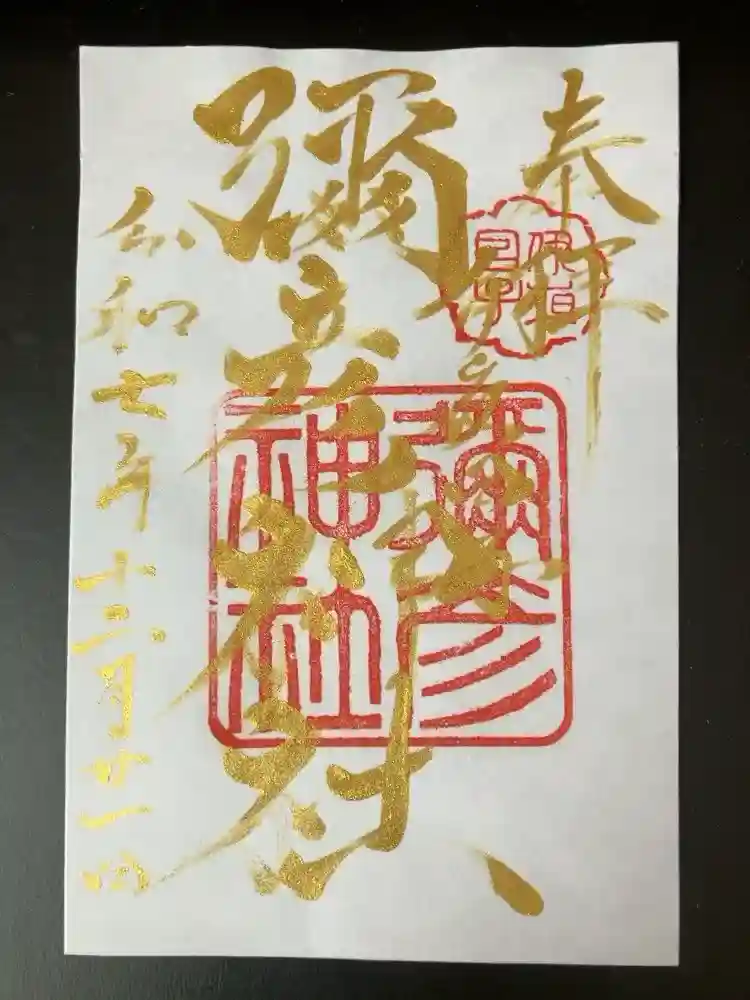 奉拝
彌彦神社
令和七年十二月廿一日
彌彦
神社